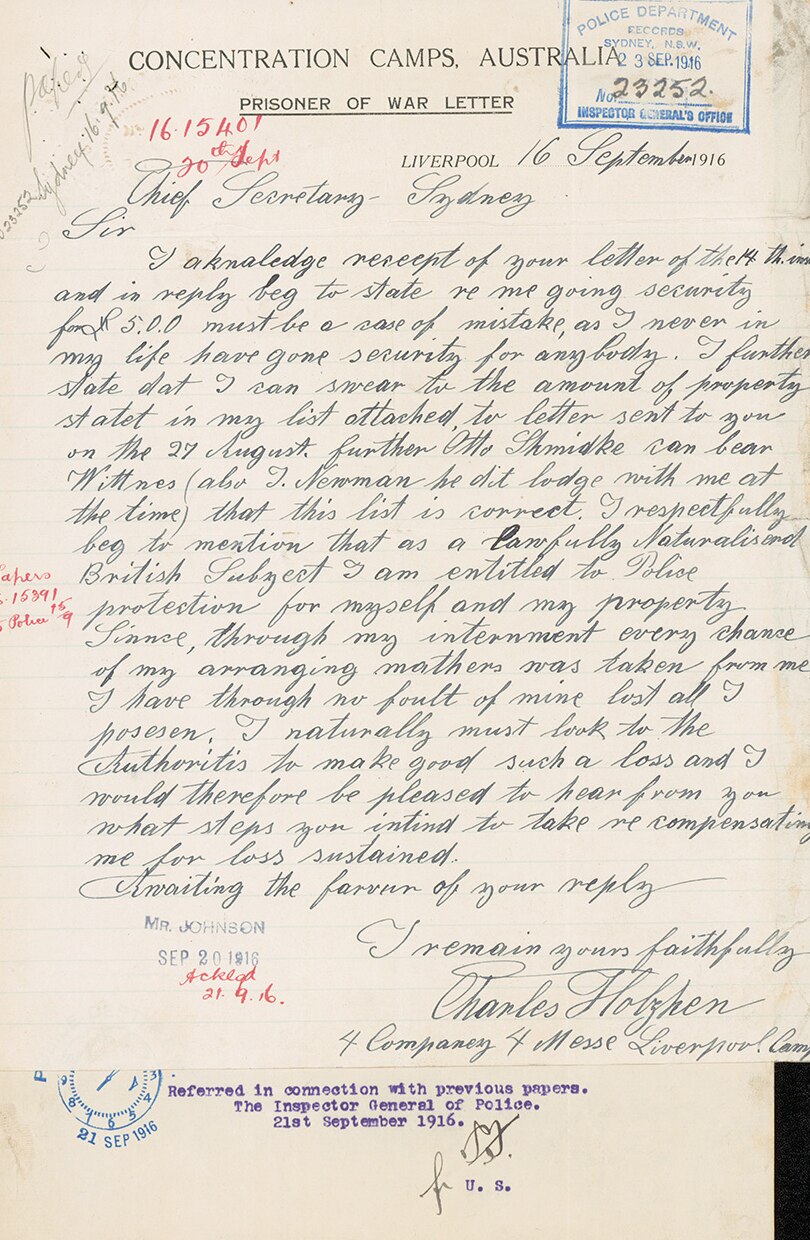 CONCENTRATION CAMPS, AUSTRALIA
PRISONER OF WAR LETTER
POLICE DEPARTMENT
RECORDS
SYDNEY, N.S.W.
23 SEP. 1916
No. 23252.
INSPECTOR GENERAL'S OFFICE
23252 Sydney 16.9.16
16.15401
20th Sept
LIVERPOOL 16 September 1916
Chief Secretary - Sydney
Sir
I aknaledge receept of your letter of the 14 th. ins
and in reply beg to state re me going security
for £ 5.0.0 must be a case of mistake, as I never in
my life have gone security for anybody. I further
state dat I can swear to the amount of property
statet in my list attached, to letter sent to you
on the 27 August. further Otto Shmidke can bear
Wittnes (also J. Newman he dit lodge with me at
the time) that this list is correct. I respectfully
beg to mention that as a Lawfully Naturaliserd
British Subject I am entitled to Police
protection for myself and my property
Sinnce, through my internment every chance
of my arranging mathers was taken from me
I have through no foult of mine lost all I
posesen. I naturally must look to the
Authoritis to make good such a loss and I
would therefore be pleased to hear from you
what steps you intind to take re compensating
me for loss sustained.
Awaiting the farvur of your reply
I remain yours faithfully
Charles Holzhen
4 Companey 4 Messe Liverpool. Camp
Papers
15391
Police 15/9
MR. JOHNSON
SEP 20 1916
Ackled
21.9.16.
21 SEP 1916
Referred in connection with previous papers.
The Inspector General of Police.
21st September 1916.
U. S.